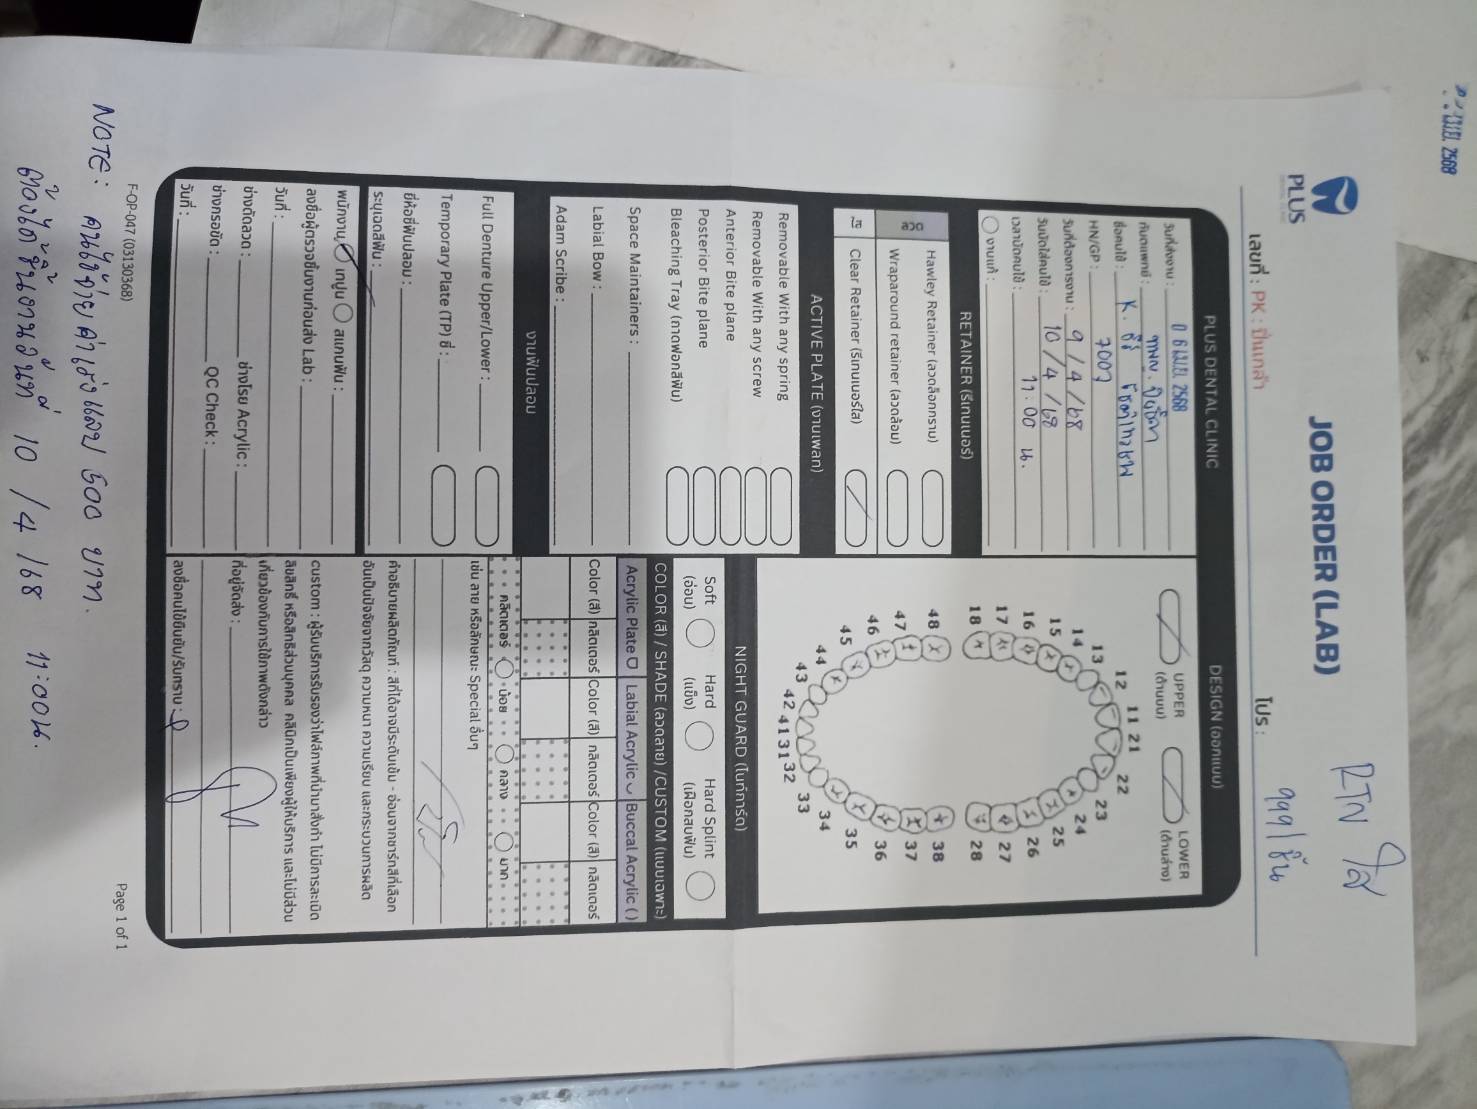 เมย. 2568
PLUS
JOB ORDER (LAB)
RTN ใส
เลขที่ : PK : ปิ่นเกล้า
โปร : 999/ชิ้น
PLUS DENTAL CLINIC
วันที่ส่งงาน : 0 6 เม.ย. 2568
ทันตแพทย์ : ทพญ.
ชื่อคนไข้ : K.
HN/GP : 7009
วันที่ต้องการงาน : 9 / 4 / 68
วันนัดใส่คนไข้ : 10 / 4 / 68
เวลานัดคนไข้ : 11:00 น.
งานแก้ :
RETAINER (รีเทนเนอร์)
ลวด
Hawley Retainer (ลวดล็อกกราม)
Wraparound retainer (ลวดล้อม)
ใส
Clear Retainer (รีเทนเนอร์ใส)
ACTIVE PLATE (งานเพลท)
Removable With any spring
Removable With any screw
Anterior Bite plane
Posterior Bite plane
Bleaching Tray (ถาดฟอกสีฟัน)
Space Maintainers :
Labial Bow :
Adam Scribe :
งานฟันปลอม
Full Denture Upper/Lower :
Temporary Plate (TP) ซี่ :
ยี่ห้อซี่ฟันปลอม :
ระบุเฉดสีฟัน :
พนักงาน เทปูน สแกนฟัน :
ลงชื่อผู้ตรวจชิ้นงานก่อนส่ง Lab :
วันที่ :
ช่างดัดลวด : ช่างโรย Acrylic :
ช่างกรอขัด : QC Check :
วันที่ :
DESIGN (ออกแบบ)
UPPER
(ด้านบน)
LOWER
(ด้านล่าง)
11 21
12 22
13 23
14 24
15 25
16 26
17 27
18 28
48 38
47 37
46 36
45 35
44 34
43 33
42 41 31 32
NIGHT GUARD (ไนท์การ์ด)
Soft
(อ่อน)
Hard
(แข็ง)
Hard Splint
(เฝือกสบฟัน)
COLOR (สี) / SHADE (ลวดลาย) /CUSTOM (แบบเฉพาะ)
Acrylic Plate Labial Acrylic Buccal Acrylic ( )
Color (สี) กลิตเตอร์ Color (สี) กลิตเตอร์ Color (สี) กลิตเตอร์
กลิตเตอร์ น้อย กลาง มาก
เช่น ลาย หรือลักษณะ Special อื่นๆ
คำอธิบายผลิตภัณฑ์ : สีที่ได้อาจมีระดับเข้ม - อ่อนจากชาร์ทสีที่เลือก
อันเป็นปัจจัยจากวัสดุ ความหนา ความเรียบ และกระบวนการผลิต
custom : ผู้รับบริการรับรองว่าไฟล์ภาพที่นำมาสั่งทำ ไม่มีการละเมิด
ลิขสิทธิ์ หรือสิทธิส่วนบุคคล คลินิกเป็นเพียงผู้ให้บริการ และไม่มีส่วน
เกี่ยวข้องกับการใช้ภาพดังกล่าว
ที่อยู่จัดส่ง :
ลงชื่อคนไข้ยืนยัน/รับทราบ :
F-OP-047 (03130368)
Page 1 of 1
NOTE : คนไข้จ่ายค่าเร่งแลป 500 บาท.
ต้องได้ชิ้นงานวันที่ 10 / 4 / 68 11:00น.